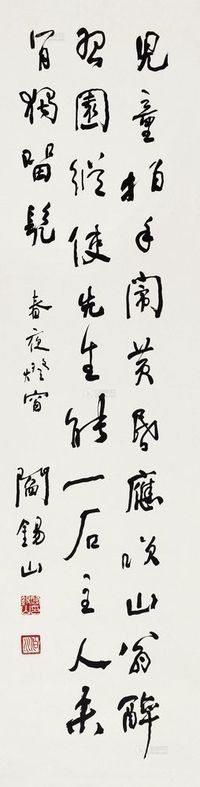 兒童拍手鬧黃昏應咲山翁醉
習園縱使先生能一石主人未
肯獨留髡 春夜燈窗 閻錫山